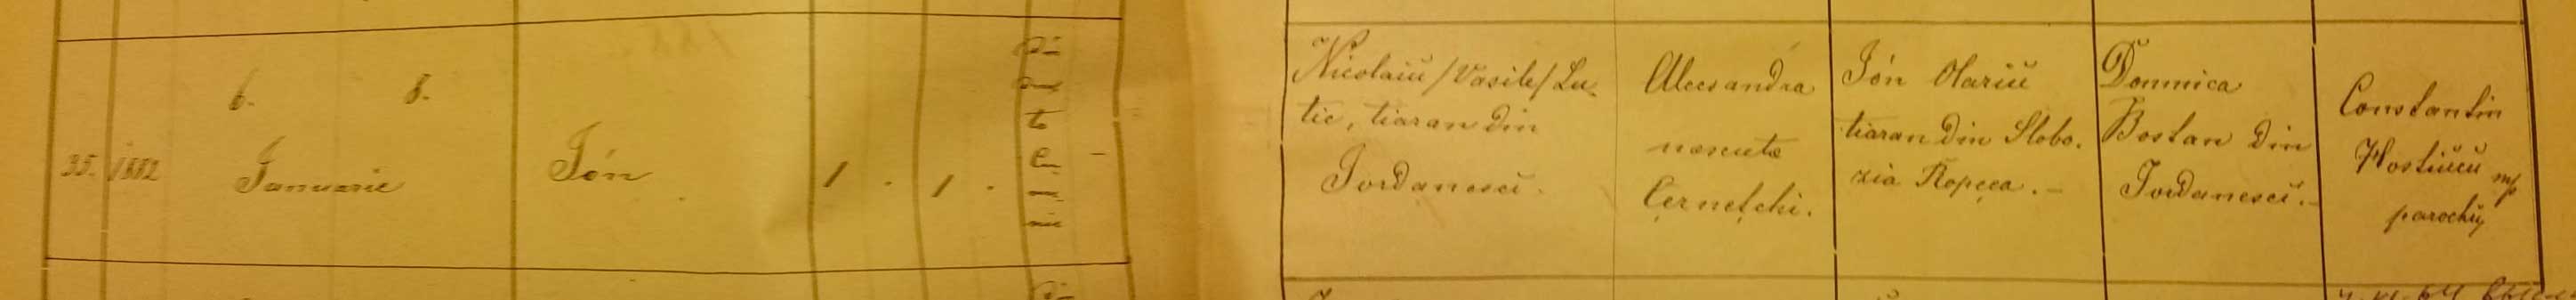 6. 8.
35. 1882 Januarie Ión 1 . 1 .
Nicolaiŭ /Vasile/ Lu-
tic, tiaran din
Jordanesci.
Alecsandra
nascuta
Cernețchi.
Ión Olariŭ
tiaran din Slobo-
zia Ropcea.-
Domnica
Bostan din
Jordanesci.-
Constantin
Hostiŭcŭ mp
parochŭ